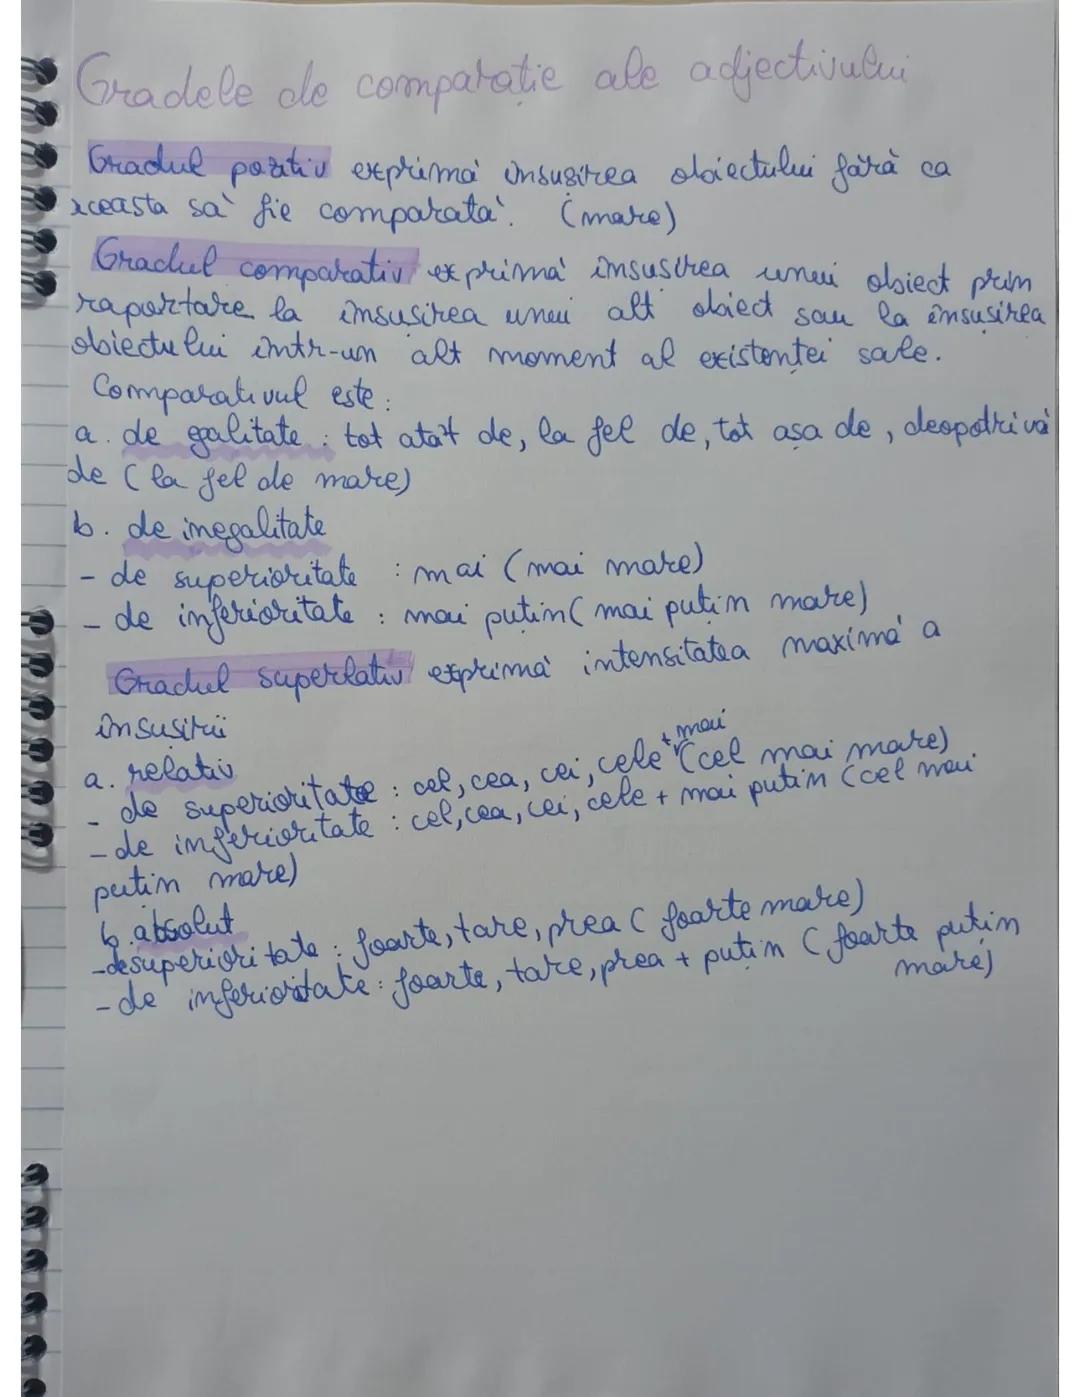 Gradele de comparație ale adjectivului
Gradul pozitiv exprimă insusirea obiectului fără ca
aceasta să fie comparată. (mare)
Gradul comparativ exprimă însusirea unui obiect prin
raportare la însusirea unui alt obiect sau la însusirea
obiectului într-un alt moment al existenței sale.
Comparativul este:
a. de egalitate : tot atât de, la fel de, tot asa de, deopotrivă
de (la fel de mare)
b. de inegalitate
- de superioritate : mai (mai mare)
- de inferioritate : mai puțin (mai puțin mare)
Gradul superlativ exprimă intensitatea maximă a
însusirii
a. relativ
- de superioritate : cel, cea, cei, cele + mai (cel mai mare)
- de inferioritate : cel, cea, cei, cele + mai puțin (cel mai
puțin mare)
b. absolut
- de superioritate : foarte, tare, prea (foarte mare)
- de inferioritate : foarte, tare, prea + puțin (foarte puțin
mare)